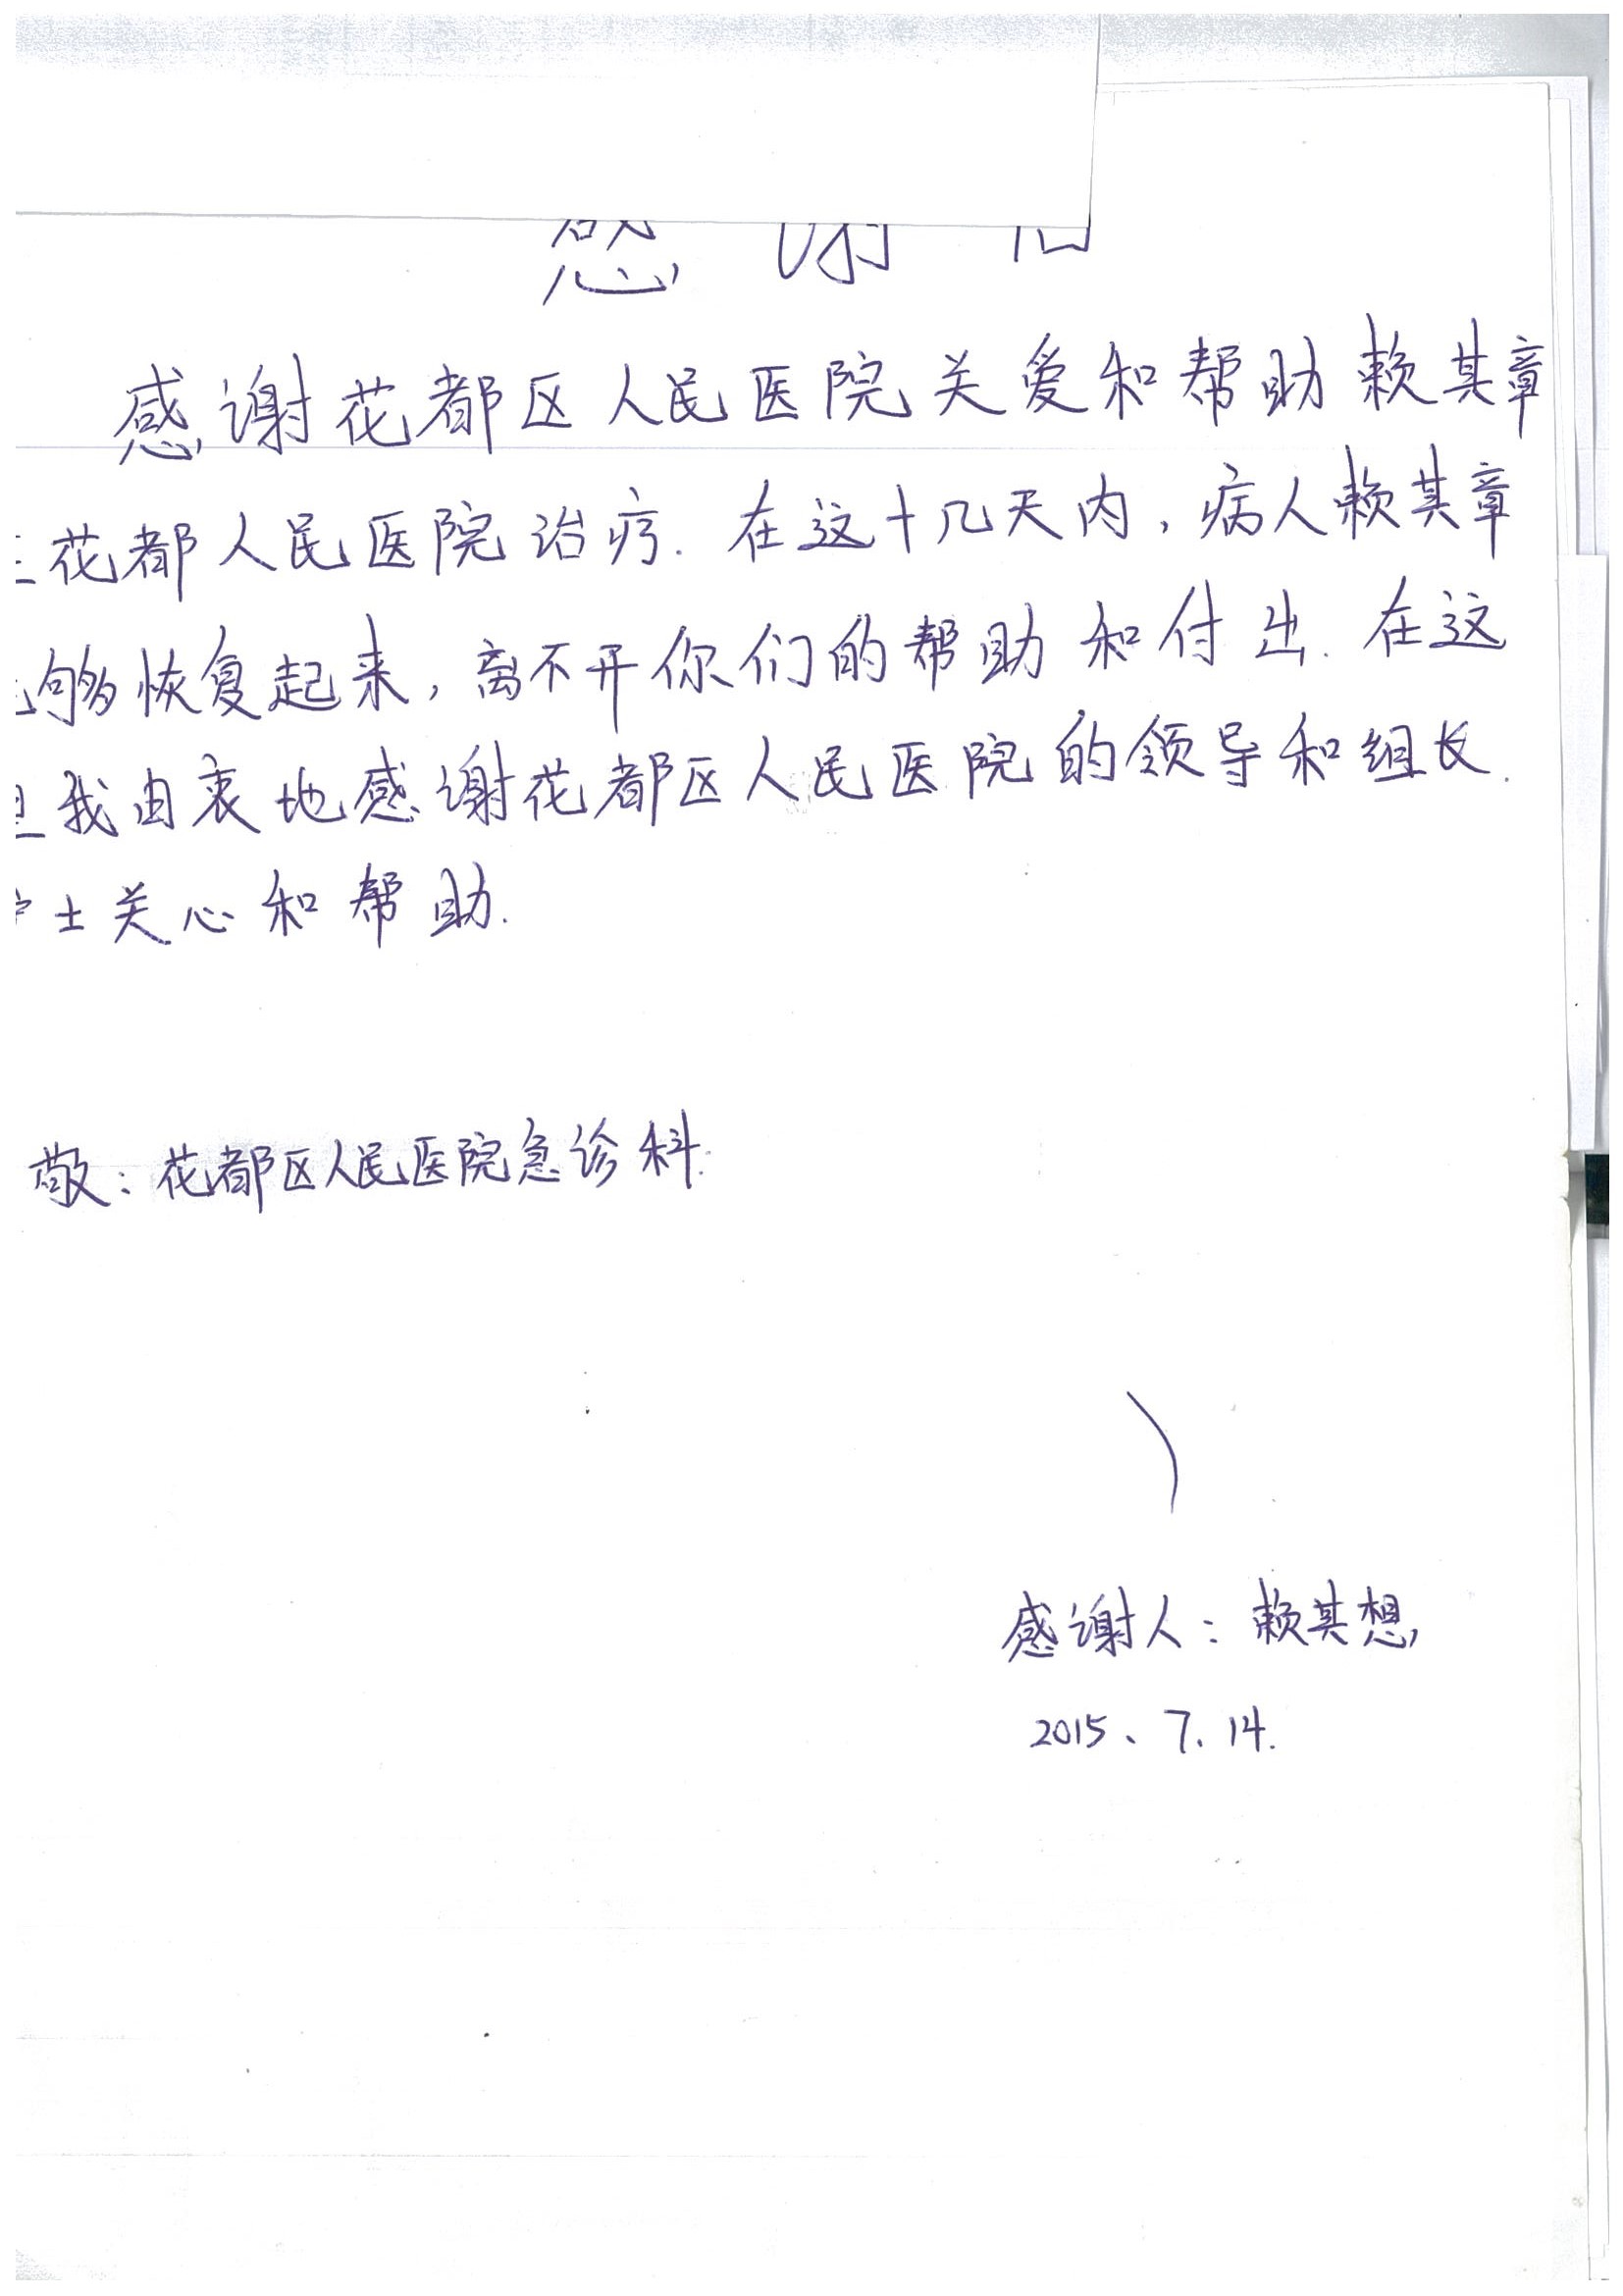 感谢
感谢花都区人民医院关爱和帮助赖其章
花都人民医院治疗.在这十几天内,病人赖其章
够恢复起来,离不开你们的帮助和付出.在这
我由衷地感谢花都区人民医院的领导和组长.
士关心和帮助.
敬:花都区人民医院急诊科.
感谢人:赖其想
2015、7、14.